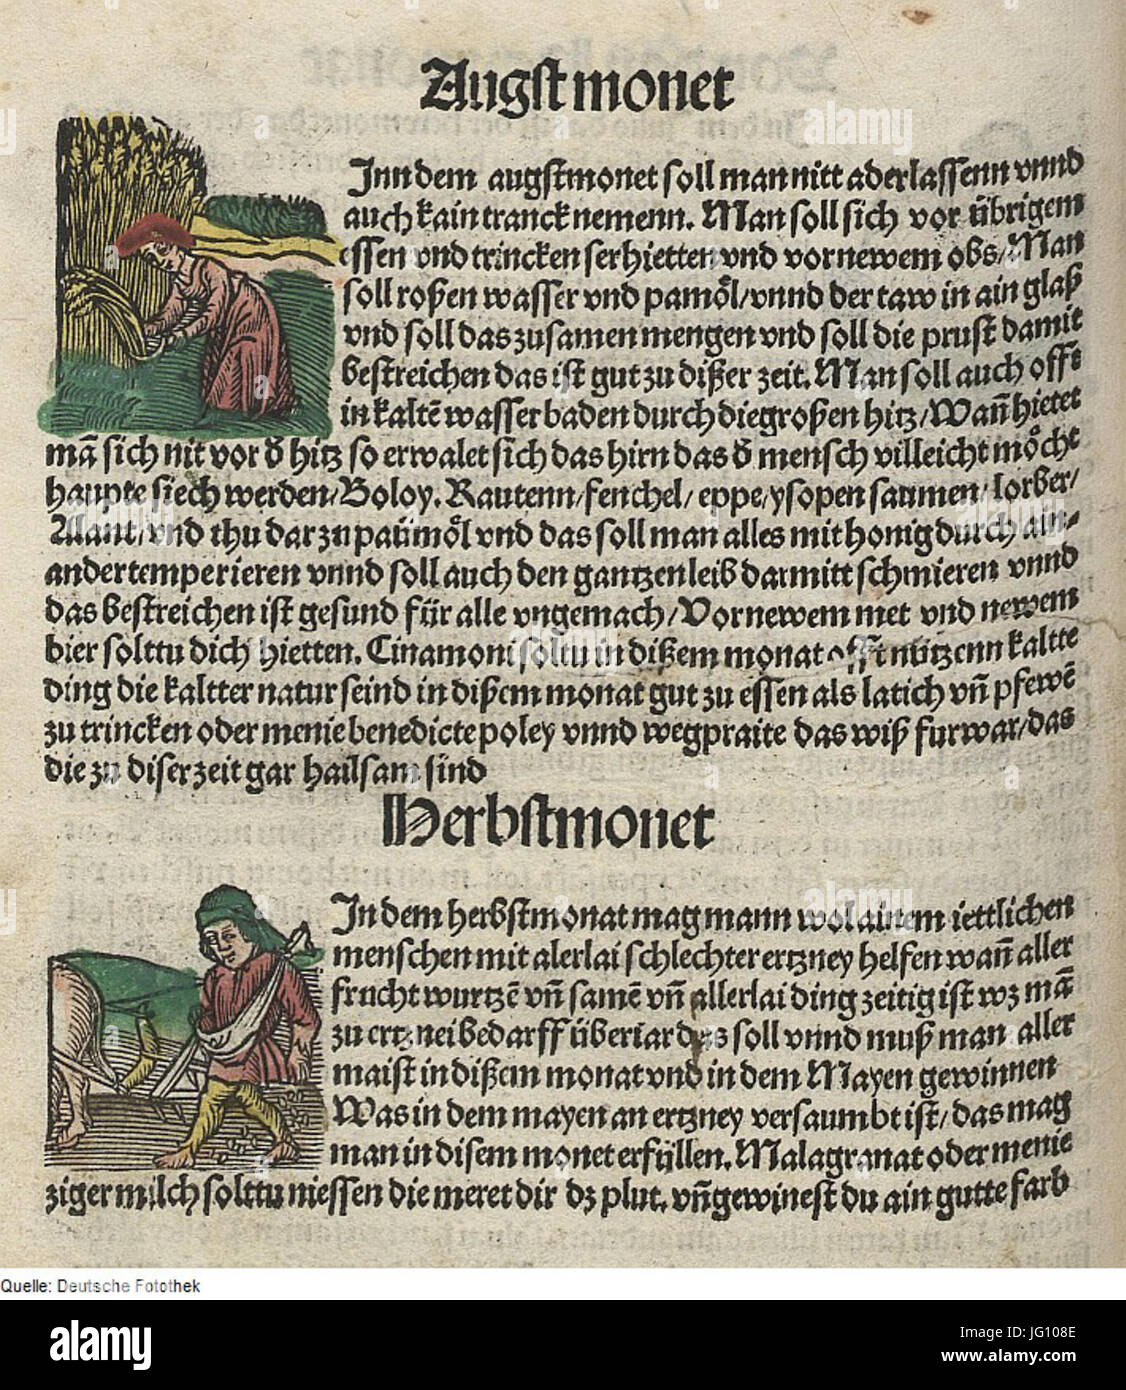 Augstmonet
Inn dem augstmonet soll man nitt aderlassenn vnnd
auch kain tranck nemenn. Man soll sich vor übrigem
essen vnd trincken ser hietten vnd vor newem obs/Man
soll roßen wasser vnd pamöl/vnnd der taw in ain glaß
vnd soll das zusamen mengen vnd soll die prust damit
bestreichen das ist gut zu dißer zeit. Man soll auch offt
in kaltē wasser baden durch die großen hitz/Wañ hietet
mā sich nit vor d̄ hitz so erwalet sich das hirn das d̄ mensch villeicht möcht
haupte siech werden/Boloy. Rautenn/fenchel/ eppe/ysopen saumen/lorber/
Alant/vnd thu dar zu paümöl vnd das soll man alles mit honig durch ain-
ander temperieren vnnd soll auch den gantzen leib darmitt schmieren vnnd
das bestreichen ist gesund für alle vngemach/Vor newem met vnd newem
bier solttu dich hietten. Cinamoni solttu in dißem monat offt nützenn kaltte
ding die kaltter natur seind in dißem monat gut zu essen als latich vñ pfewē
zu trincken oder menie benedicte poley vnnd wegpraite das wiß furwar/das
die zu diser zeit gar hailsam sind
Herbstmonet
In dem herbstmonat mag mann wol ainem iettlichen
menschen mit alerlai schlechter ertzney helfen wañ aller
frucht wurtzē vñ samē vñ allerlai ding zeitig ist wz mā
zu ertznei bedarff über iar das soll vnnd muß man aller
maist in dißem monat vnd in dem Mayen gewinnen
Was in dem mayen an ertzney versaumbt ist/das mag
man in disem monet erfüllen. Malagranat oder menie
ziger milch solttu niessen die meret dir dz plut. vñ gewinest du ain gutte farb
Quelle: Deutsche Fotothek
alamy
Image ID: JG108E
www.alamy.com